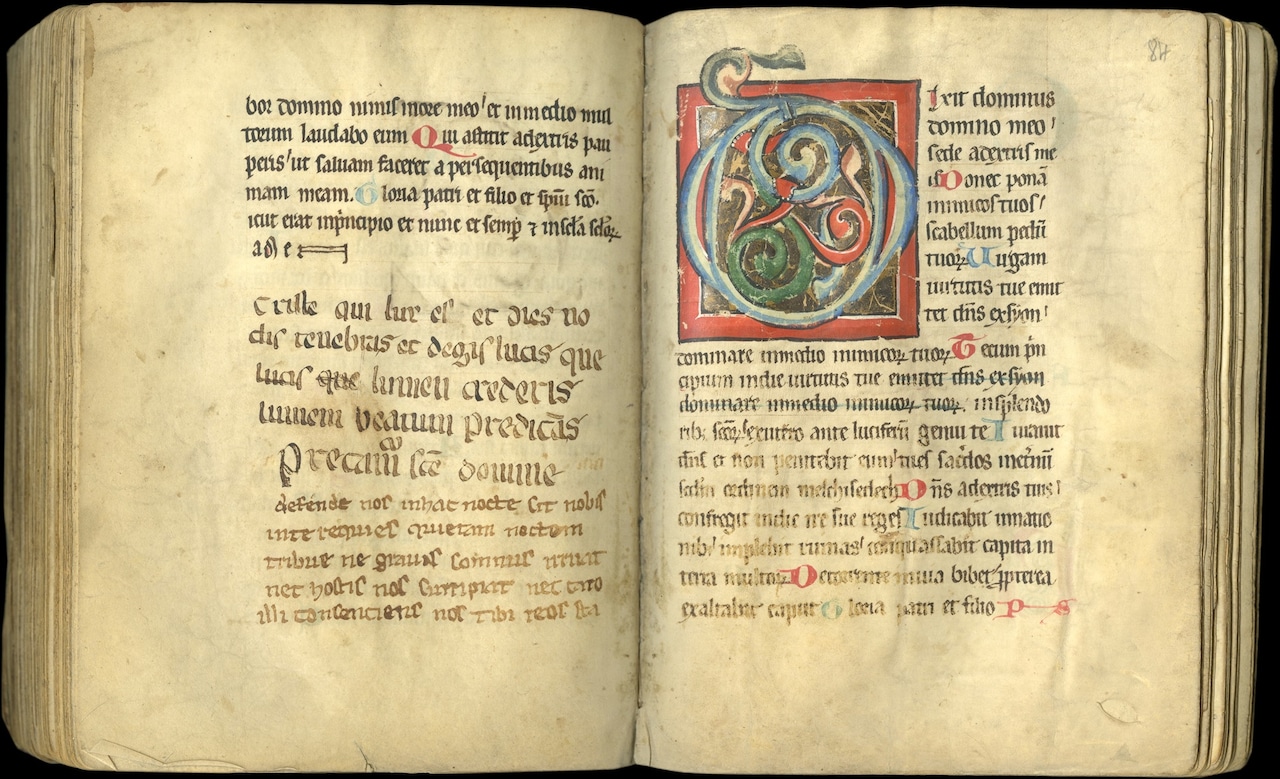 bor domino nimis in ore meo et in medio mul
torum laudabo eum Qui astitit adextris pau
peris ut saluam faceret a persequentibus ani
mam meam. Gloria patri et filio et spũi sco.
icut erat inprincipio et nunc et semp ⁊ inscla sclor
a
Criste qui lux es et dies no
ctis tenebras et degis lucis que
lucis que lumen crederis
lumen beatum predicãs
Precam sce domine
defende nos inhac nocte sit nobis
inte requies quietam noctem
tribue ne grauis somnus irruat
nec hostis nos surripiat nec caro
illi consenciens nos tibi reos sta
84
Dixit dominus
domino meo
sede adextris me
is Donec ponã
inimicos tuos
scabellum pedũ
tuoꝝ Uirgam
uirtutis tue emit
tet dñs exsyon
dominare inmedio inimicoꝝ tuoꝝ Tecum prin
cipium indie uirtutis tue emittet dñs exsyon
dominare inmedio inimicoꝝ tuoꝝ. insplendo
rib scoꝝ exutero ante luciferũ genui te Iurauit
dñs et non penitebit eum tu es sacdos ineternũ
scdm ordinem melchisedech Dñs adextris tuis
confregit indie ire sue reges Iudicabit innatio
nib implebit ruinas conquassabit capita in
terra multoꝝ De torrente inuia bibet ppterea
exaltabit caput Gloria patri et filio